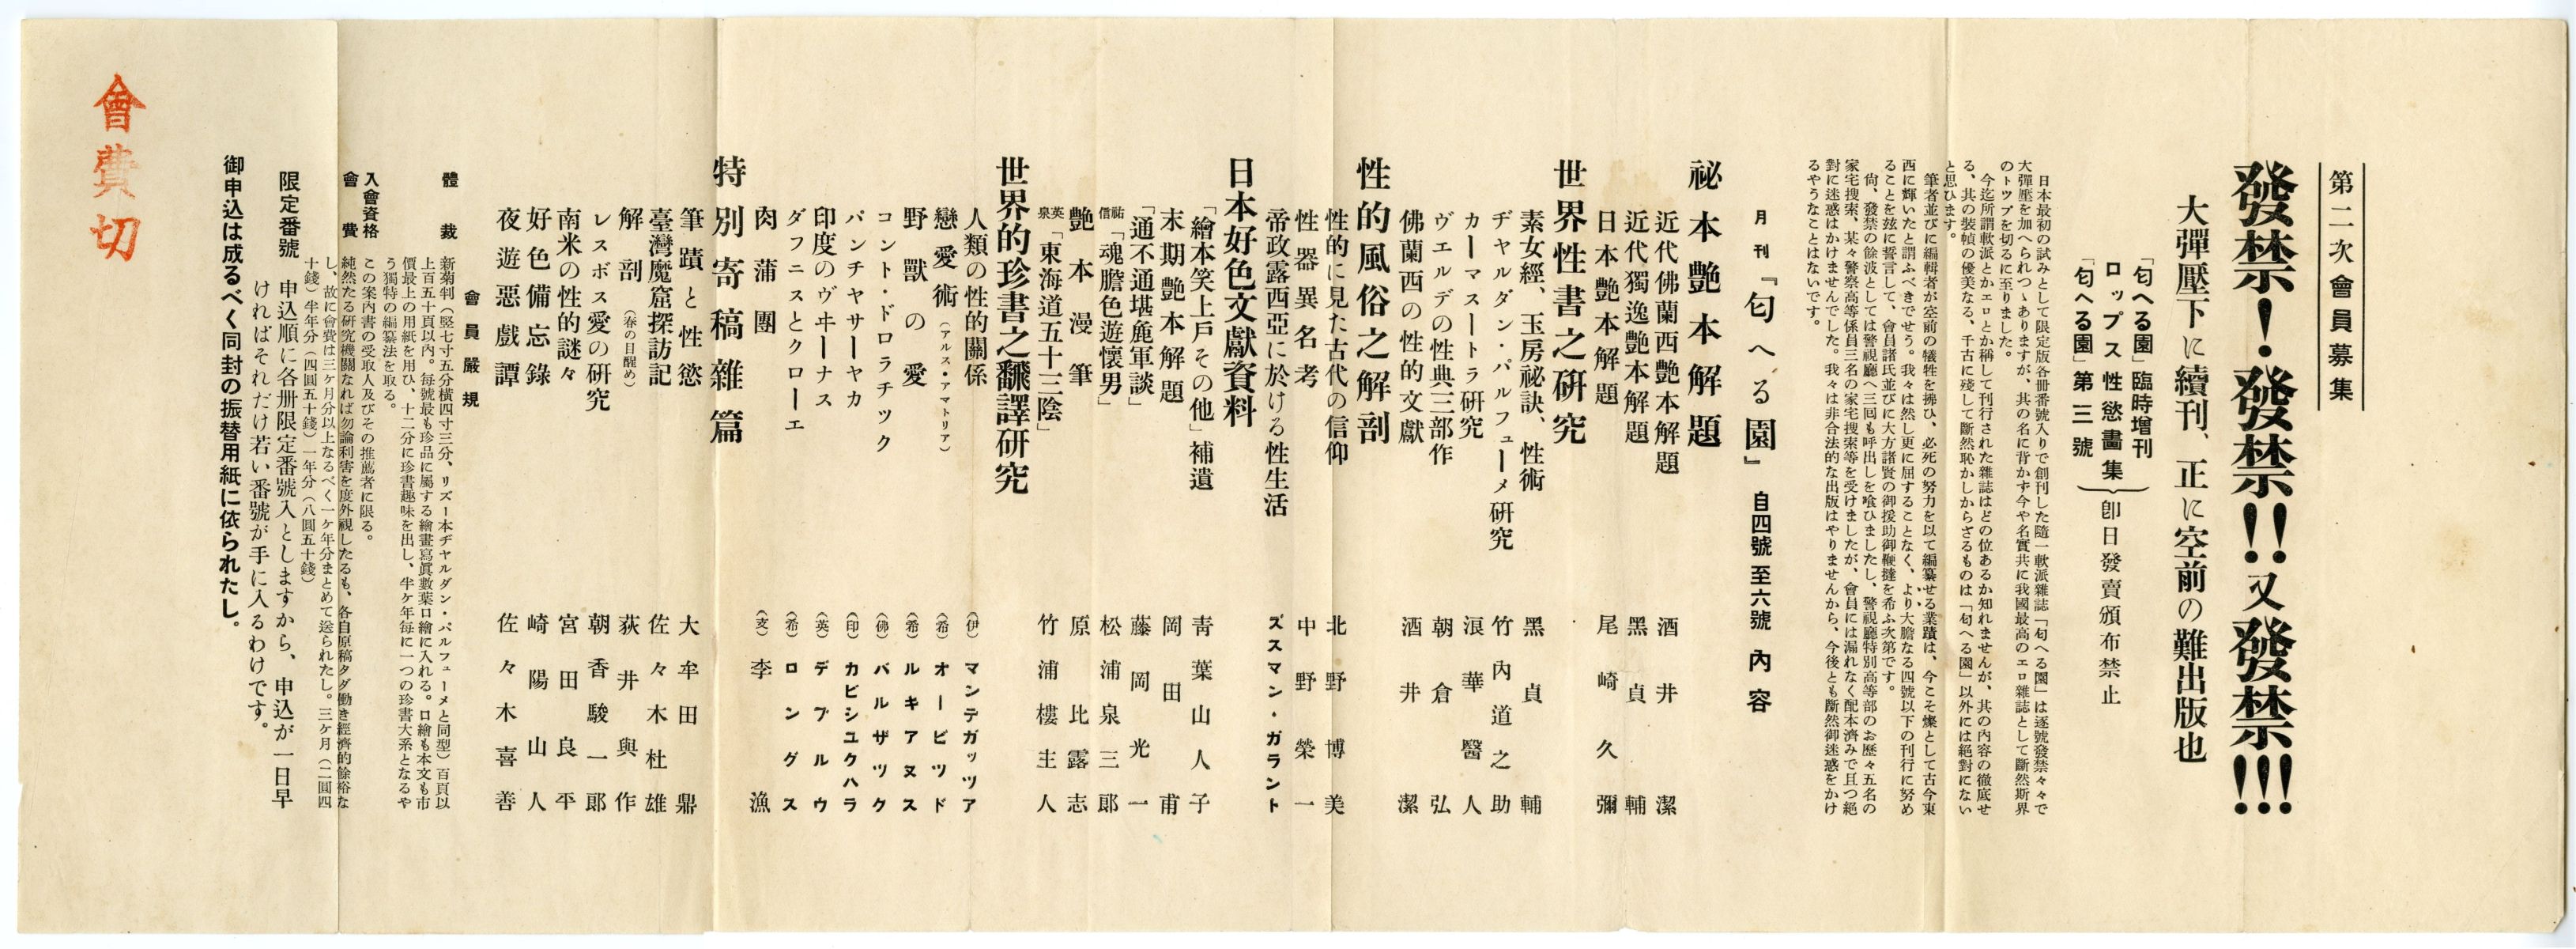 第二次會員募集
發禁！發禁!!又發禁!!!
大彈壓下に續刊、正に空前の難出版也
「匂へる園」臨時増刊
ロップス性慾畫集
「匂へる園」第三號
卽日發賣頒布禁止
日本最初の試みとして限定版各册番號入りで創刊した隨一軟派雜誌「匂へる園」は逐號發禁々々で
大彈壓を加へられつゝありますが、其の名に背かず今や名實共に我國最高のエロ雜誌として斷然斯界
のトップを切るに至りました。
今迄所謂軟派とかエロとか稱して刊行された雜誌はどの位あるか知れませんが、其の内容の徹底せ
る、其の裝幀の優美なる、千古に殘して斷然恥かしからざるものは「匂へる園」以外には絕對にない
と思ひます。
筆者並びに編輯者が空前の犧牲を拂ひ、必死の努力を以て編纂せる業蹟は、今こそ燦として古今東
西に輝いたと謂ふべきでせう。我々は然し更に屈することなく、より大膽なる四號以下の刊行に努め
ることを玆に誓言して、會員諸氏並びに大方諸賢の御援助御鞭撻を希ふ次第です。
尙、發禁の餘波としては警視廳へ三回も呼出しを喰ひましたし、警視廳特別高等部のお歷々五名の
家宅搜索、某々警察高等係員三名の家宅搜索等を受けましたが、會員には漏れなく配本濟みで且つ絕
對に迷惑はかけませんでした。我々は非合法的な出版はやりませんから、今後とも斷然御迷惑をかけ
るやうなことはないです。
月刊『匂へる園』自四號至六號內容
祕本艶本解題
近代佛蘭西艶本解題 酒井潔
近代獨逸艶本解題 黑貞輔
日本艶本解題 尾崎久彌
世界性書之硏究
素女經、玉房祕訣、性術 黑貞輔
ヂャルダン・パルフューメ硏究 竹內道之助
カーマスートラ硏究 浪華醫人
ヴエルデの性典三部作 朝倉弘
佛蘭西の性的文獻 酒井潔
性的風俗之解剖
性的に見た古代の信仰 北野博美
性器異名考 中野榮一
帝政露西亞に於ける性生活 ズスマン・ガラント
日本好色文獻資料
「繪本笑上戶その他」補遺 靑葉山人子
末期艶本解題 岡田甫
「通不通堪麁軍談」 藤岡光一
祐信「魂膽色遊懷男」 松浦泉三郞
艶本漫筆 原比露志
英泉「東海道五十三陰」 竹浦樓主人
世界的珍書之飜譯硏究
人類の性的關係 (伊)マンテガッツア
戀愛術(アルス・アマトリア) (希)オービツド
野獸の愛 (希)ルキアヌス
コント・ドロラチツク (佛)バルザツク
パンチヤサーヤカ (印)カビシユクハラ
印度のヴヰーナス (英)デブルウ
ダフニスとクローエ (希)ロングス
肉蒲團 (支)李漁
特別寄稿雜篇
筆蹟と性慾 大牟田鼎
臺灣魔窟探訪記 佐々木杜雄
解剖(春の目醒め) 荻井與作
レスボス愛の硏究 朝香駿一郞
南米の性的謎々 宮田良平
好色備忘錄 崎陽山人
夜遊惡戲譚 佐々木喜善
會員嚴規
體裁 新菊判(竪七寸五分橫四寸三分、リズー本ヂヤルダン・パルフューメと同型)百頁以
上百五十頁以內。每號最も珍品に屬する繪畫寫眞數葉口繪に入れる。口繪も本文も市
價最上の用紙を用ひ、十二分に珍書趣味を出し、半ケ年每に一つの珍書大系となるや
う獨特の編纂法を取る。
入會資格 この案內書の受取人及びその推薦者に限る。
會費 純然たる硏究機關なれば勿論利害を度外視したるも、各自原稿タダ働き經濟的餘裕な
し、故に會費は三ケ月分以上なるべく一ケ年分まとめて送られたし。三ケ月(二圓四
十錢)半年分(四圓五十錢)一年分(八圓五十錢)
限定番號 申込順に各册限定番號入としますから、申込が一日早
ければそれだけ若い番號が手に入るわけです。
御申込は成るべく同封の振替用紙に依られたし。
會費切